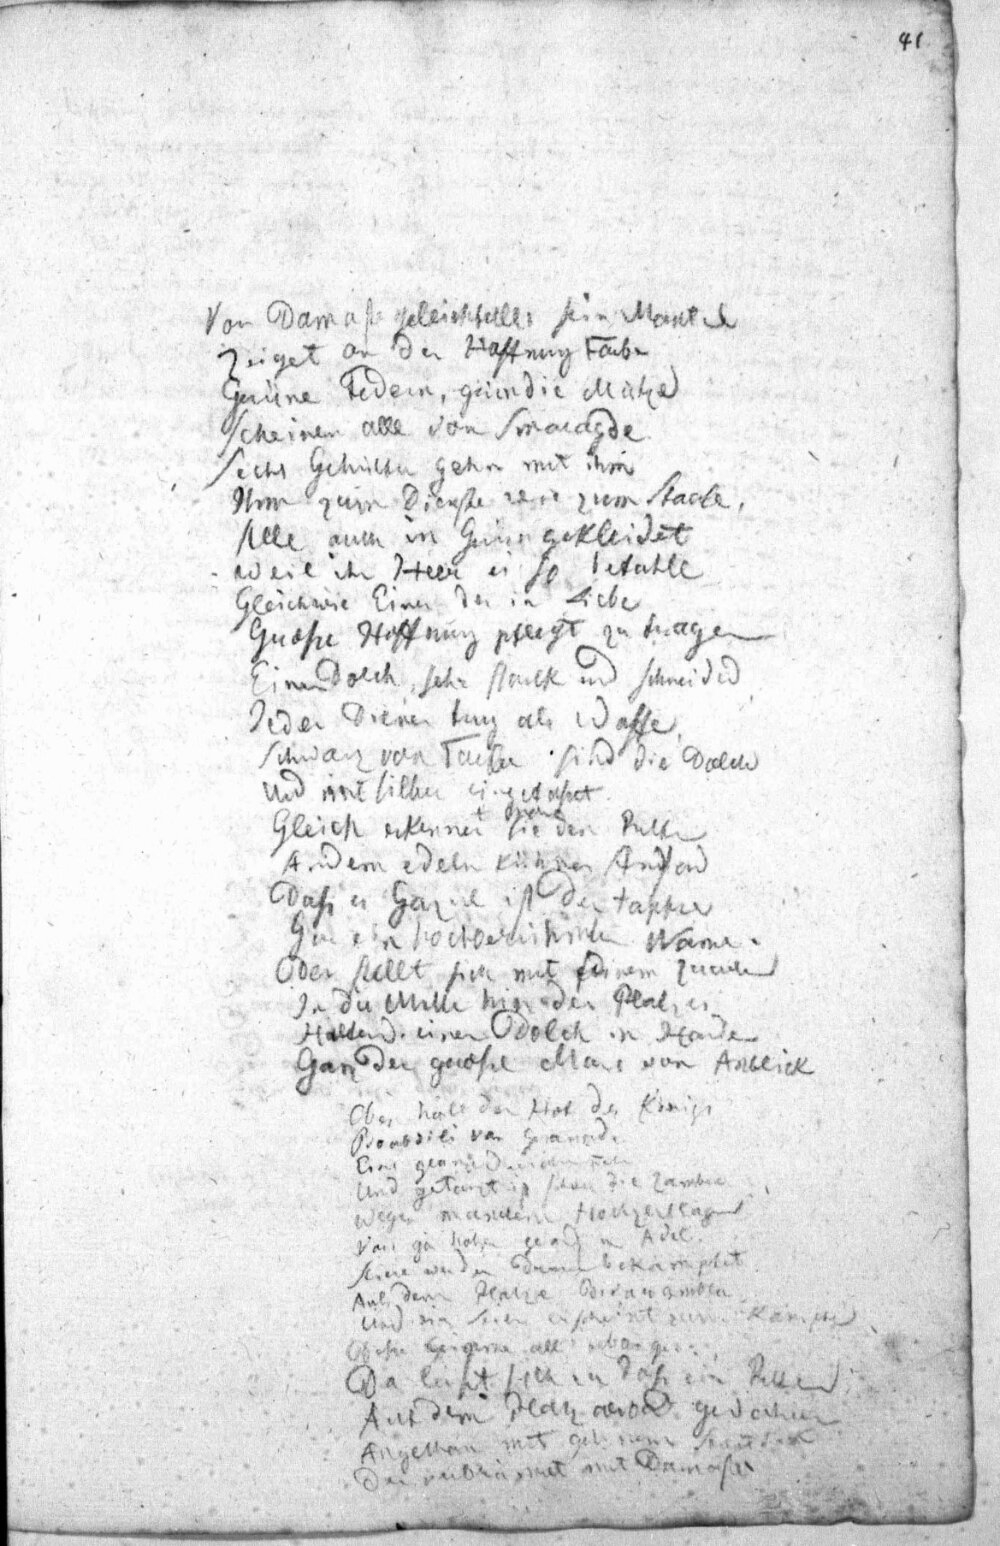 41
Von Damast gleichfalls sein Mantel
Zeiget an der Hoffnung Farbe
Grüne Federn, grün die Mütze
Scheinen alle von Smaragde
Sechs gehn mit ihm
Ihm zum Dienste wie zum Staate,
Alle auch in Grün gekleidet
weil ihr Herr es so befahle
Gleichwie Einer der in Liebe
Große Hoffnung pflegt zu tragen
Einen Dolch, sehr stark und schneidend
Jeder Diener trug als Waffe,
Schwarz von Farbe sind die Dolche
und mit Silber eingefasset.
Gleich erkennet den Ritter
An dem edeln kühnen Anstand
Daß es Gazul ist der tapfre
Gar ein hochberühmter Name.
Oder stellt sich mit seinem
In die Mitte hin des Platzes
Haltend einen Dolch in Händen
Ganz der große Mars von Anblick
Oben hält der Hof des Königs
Boabdili von Granada
Eine
Und getanzt ist schon die Zambra
Wegen manchem Hochzeittage
Von gar hohen in Adel.
Stiere werden drum bekämpfet
Auf dem Platze Bivarambla
Und ein Stier erscheint zum Kampfe
Da läßt sich ein Ritter
Auf dem Platz
Angethan mit grünem
Der verbrämet mit Damaste